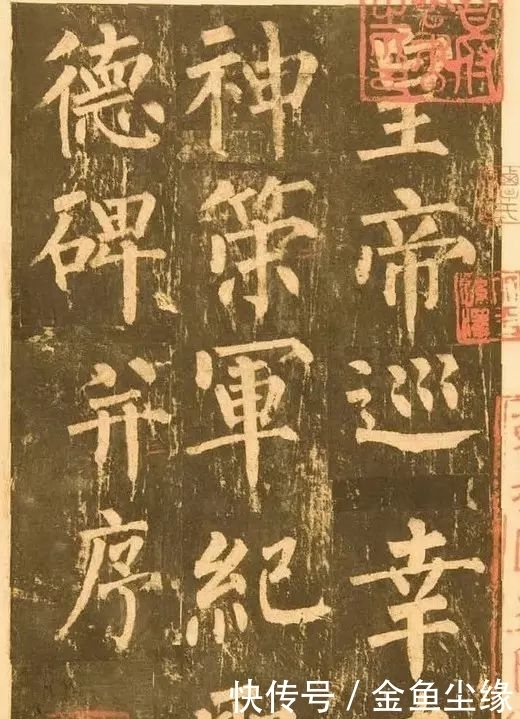 皇帝巡幸
神策軍紀
德碑并序
快传号 / 金鱼尘缘